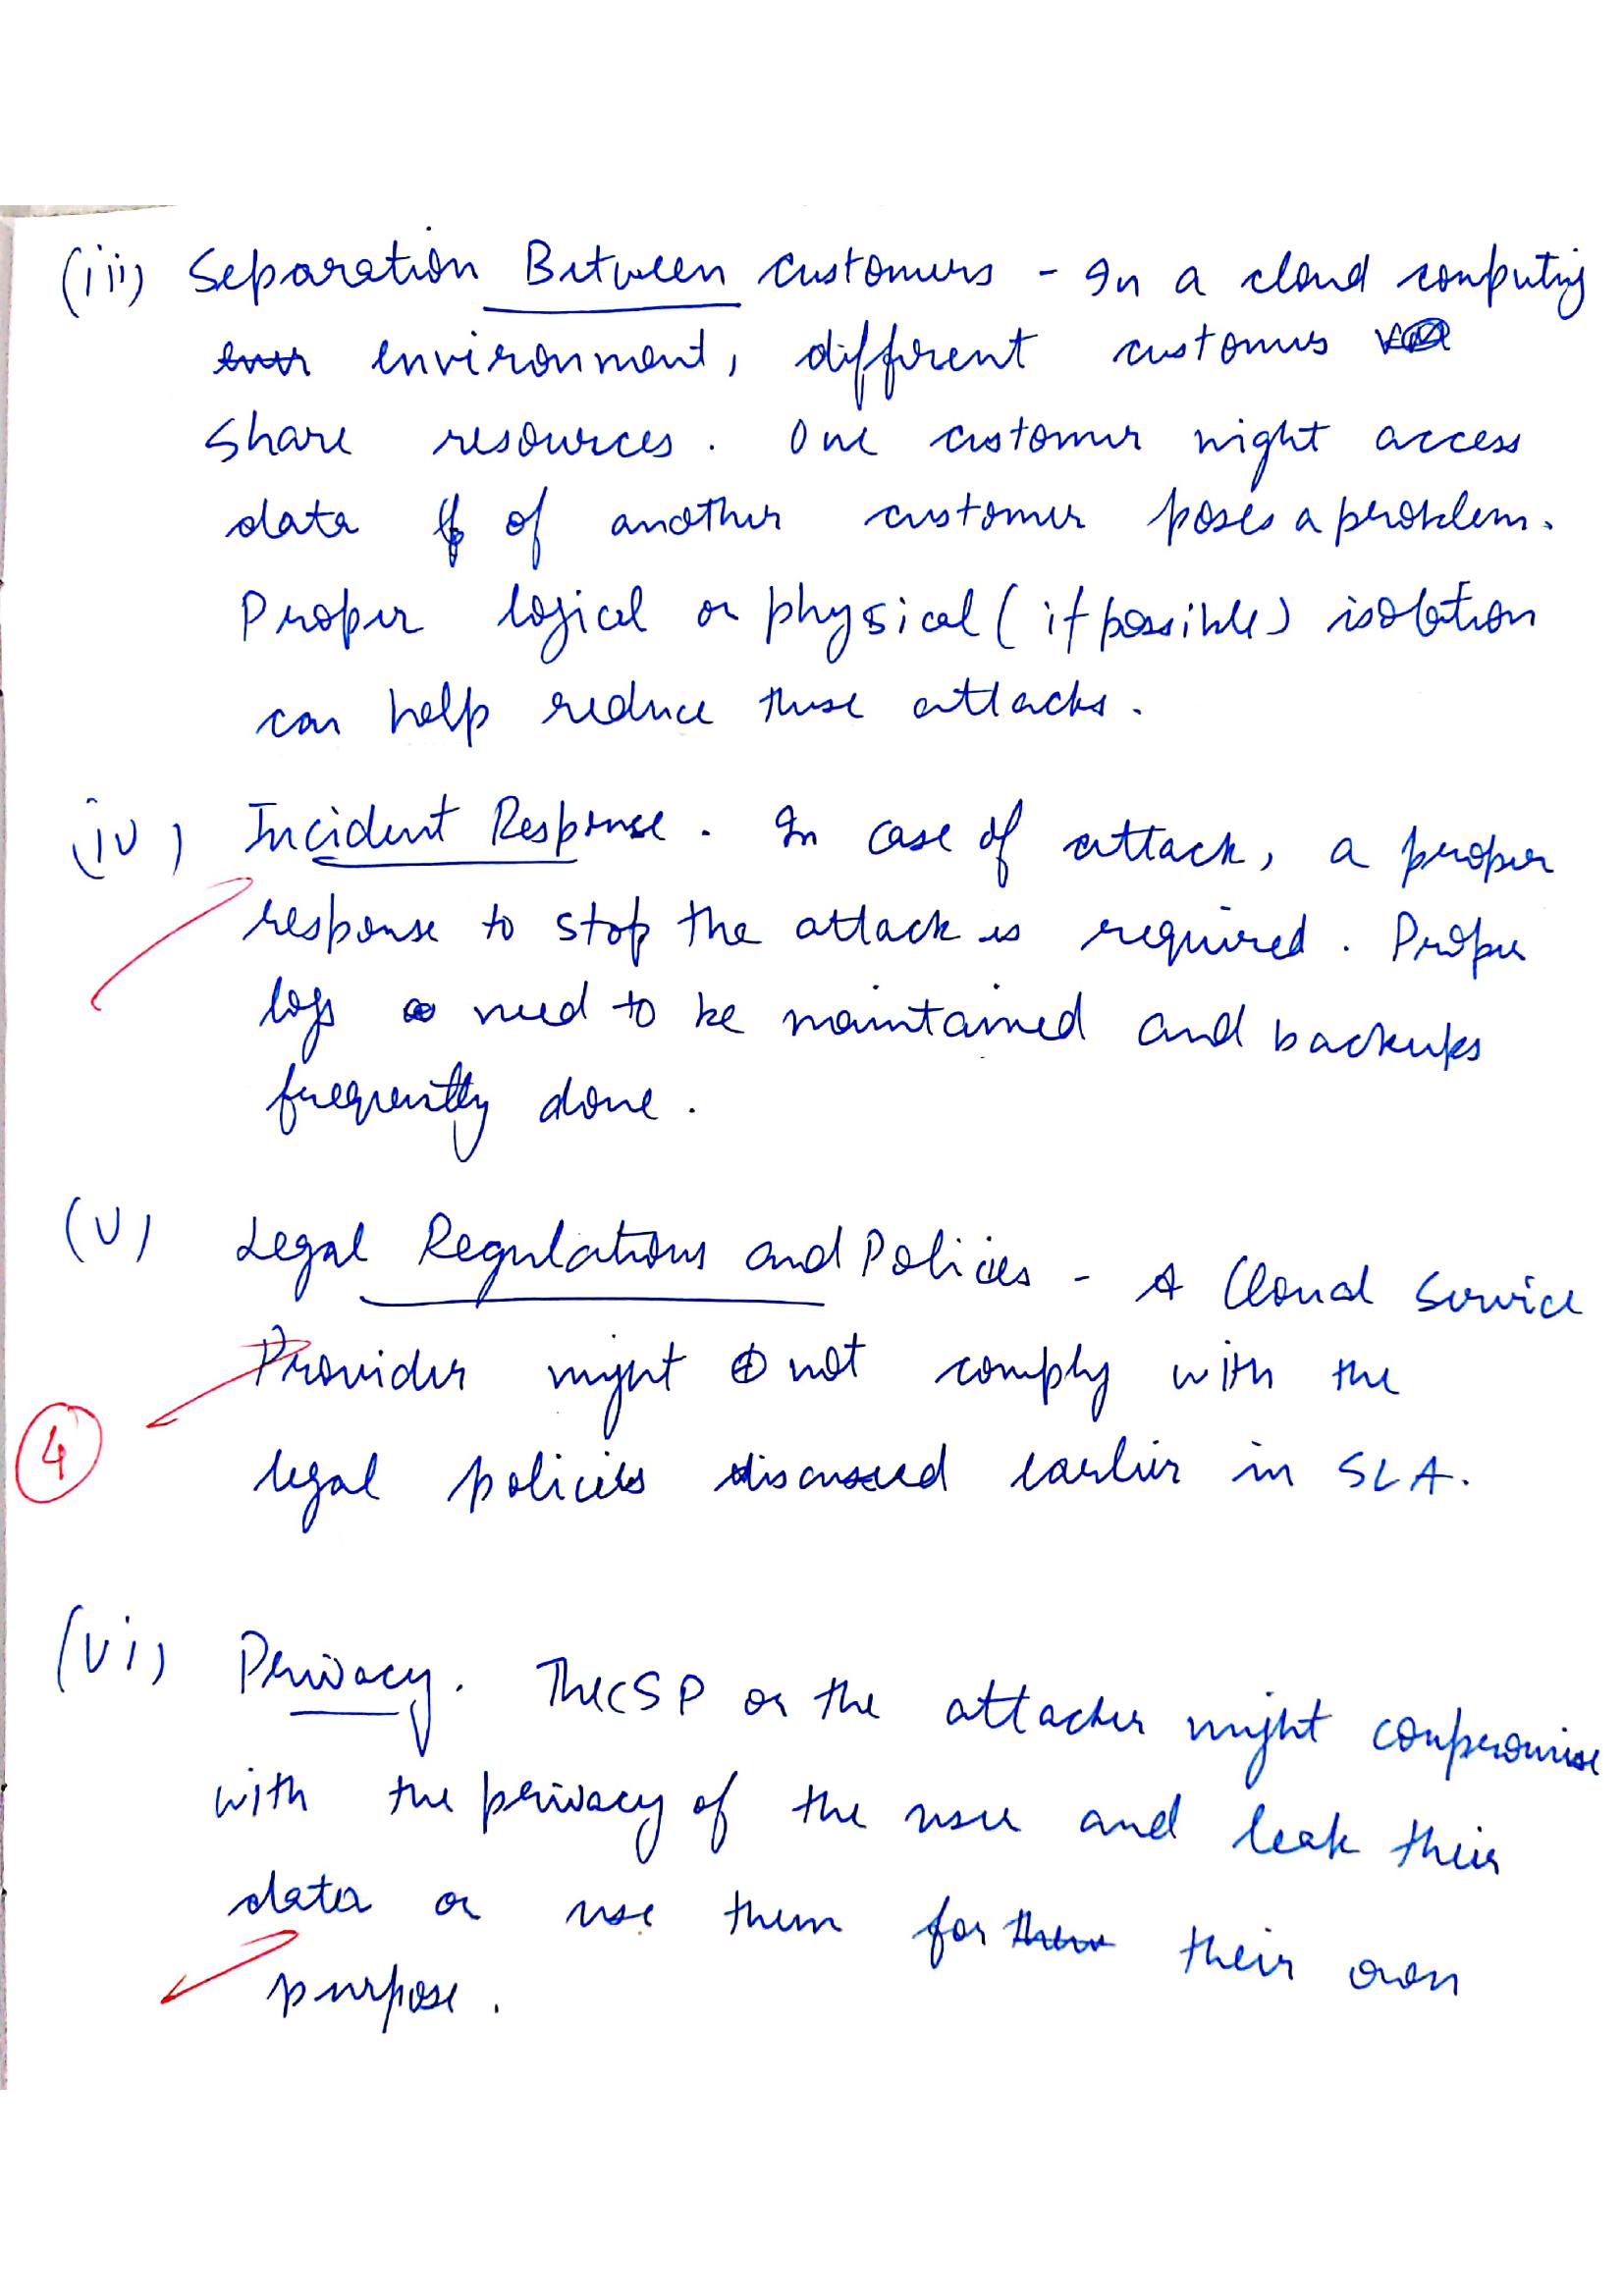 (iii) Separation Between customers - In a cloud computing
environment, different customers
share resources. One customer might access
data of another customer poses a problem.
Proper logical or physical (if possible) isolation
can help reduce these attacks.
(iv) Incident Response. In case of attack, a proper
response to stop the attack is required. Proper
logs need to be maintained and backups
frequently done.
(v) Legal Regulations and Policies - A Cloud Service
Provider might not comply with the
4
legal policies discussed earlier in SLA.
(vi) Privacy. The CSP or the attacker might compromise
with the privacy of the user and leak their
data or use them for their own
purpose.